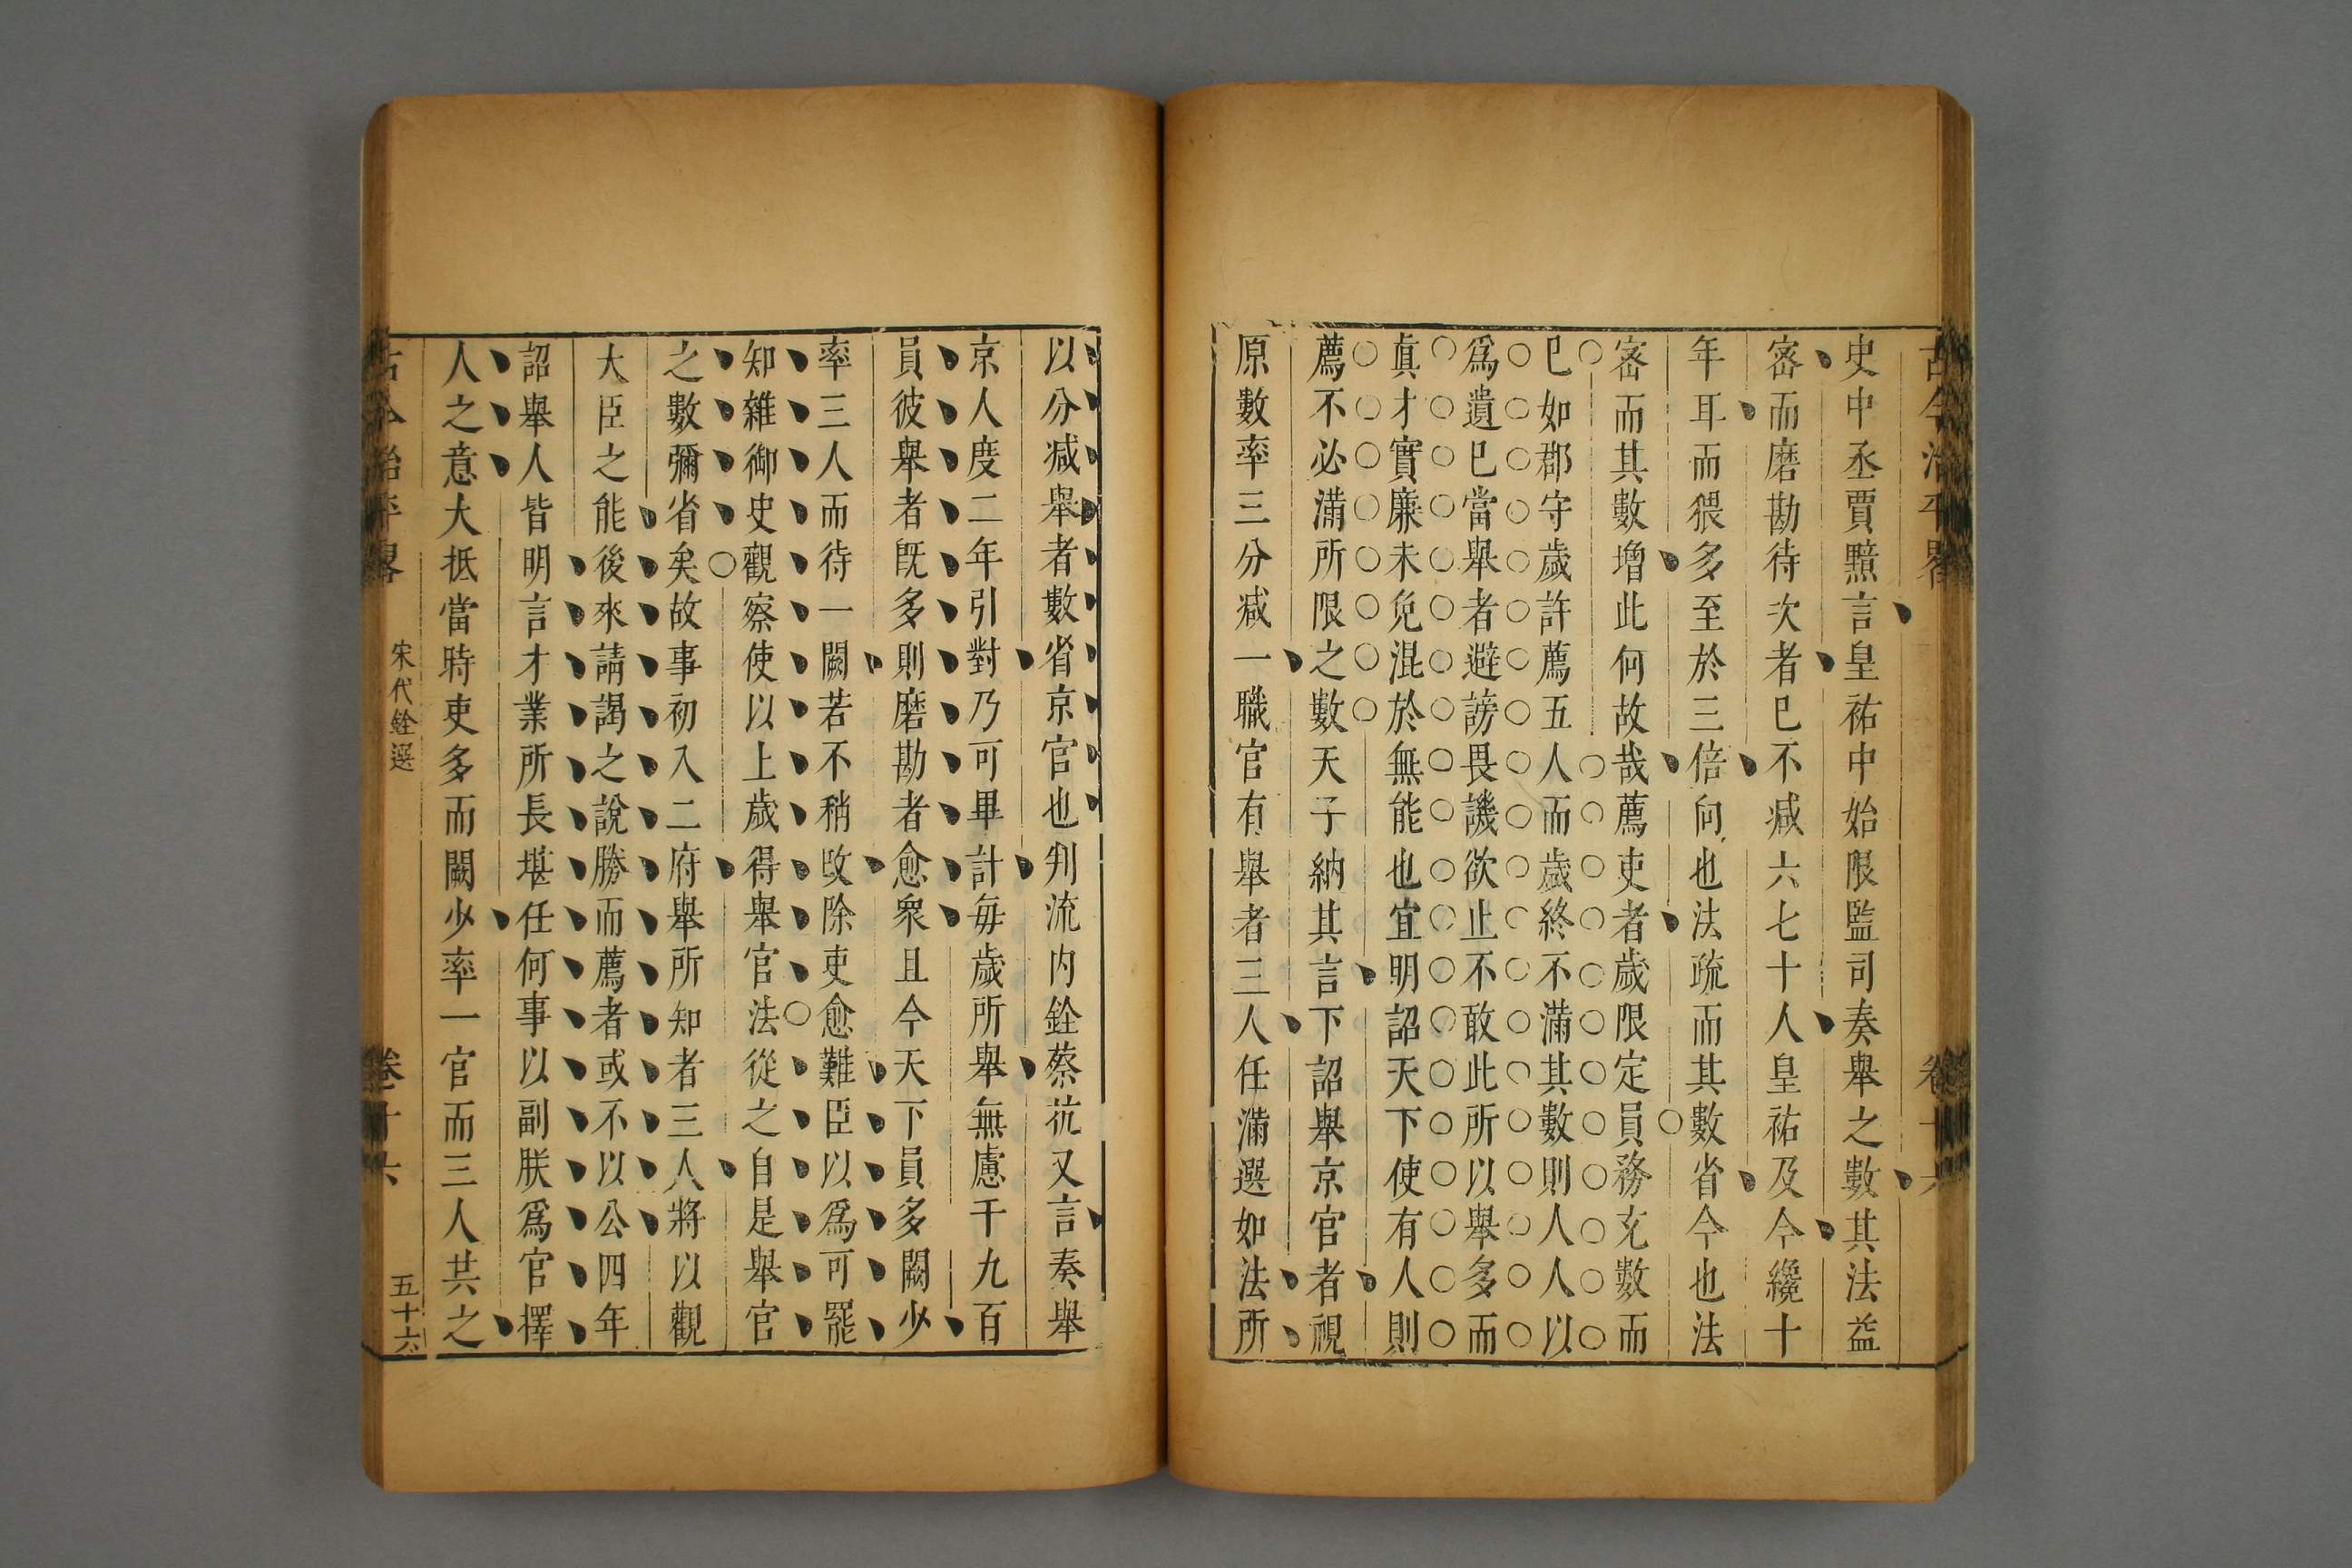 古今治平畧 卷十六
史中丞賈黯言皇祐中始限監司奏舉之數其法益
密而磨勘待次者已不减六七十人皇祐及今纔十
年耳而猥多至於三倍向也法疏而其數省今也法
密而其數增此何故哉薦吏者歲限定員務充數而
已如郡守歲許薦五人而歲終不滿其數則人人以
爲遺已當舉者避謗畏譏欲止不敢此所以舉多而
眞才實廉未免混於無能也宜明詔天下使有人則
薦不必滿所限之數天子納其言下詔舉京官者視
原數率三分减一職官有舉者三人任滿選如法所
以分减舉者數省京官也判流内銓蔡抗又言奏舉
京人度二年引對乃可畢計每歲所舉無慮千九百
員彼舉者旣多則磨勘者愈衆且今天下員多闕少
率三人而待一闕若不稍改除吏愈難臣以爲可罷
知雜御史觀察使以上歲得舉官法從之自是舉官
之數彌省矣故事初入二府舉所知者三人將以觀
大臣之能後來請謁之說勝而薦者或不以公四年
詔舉人皆明言才業所長堪任何事以副朕爲官擇
人之意大抵當時吏多而闕少率一官而三人共之
古今治平畧 宋代銓選 卷十六 五十六